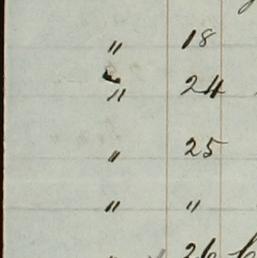 " 18
" 24
" 25
" "
" 26